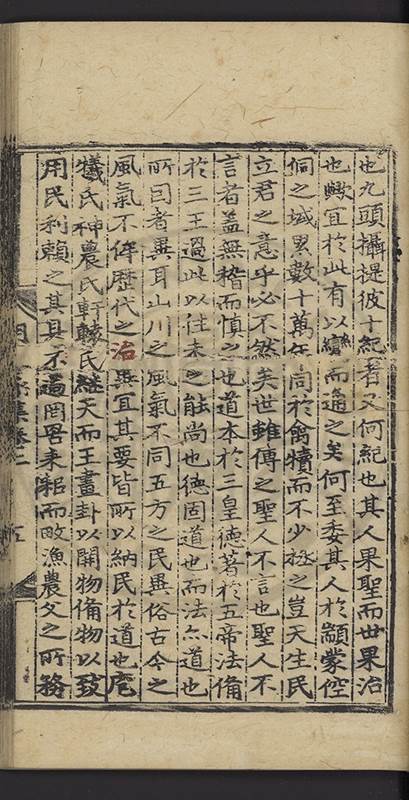 也九頭攝提彼十紀者又何紀也其人果聖而世果治
也輙宜於此有以續而通之矣何至委其人於顓蒙倥
侗之域累數十萬年同於禽犢而不少拯之豈天生民
立君之意乎必不然矣世雖傳之聖人不言也聖人不
言者盖無稽而慎之也道本於三皇德著於五帝法備
於三王過此以往未之能尚也德固道也而法亦道也
所因者異耳山川之風氣不同五方之民異俗古今之
風氣不侔歷代之治異宜其要皆所以納民於道也庖
犧氏神農氏軒轅氏繼天而王畫卦以開物備物以致
用民利賴之其具不過罔罟耒耜而畋漁農夂之所務
集卷二
五